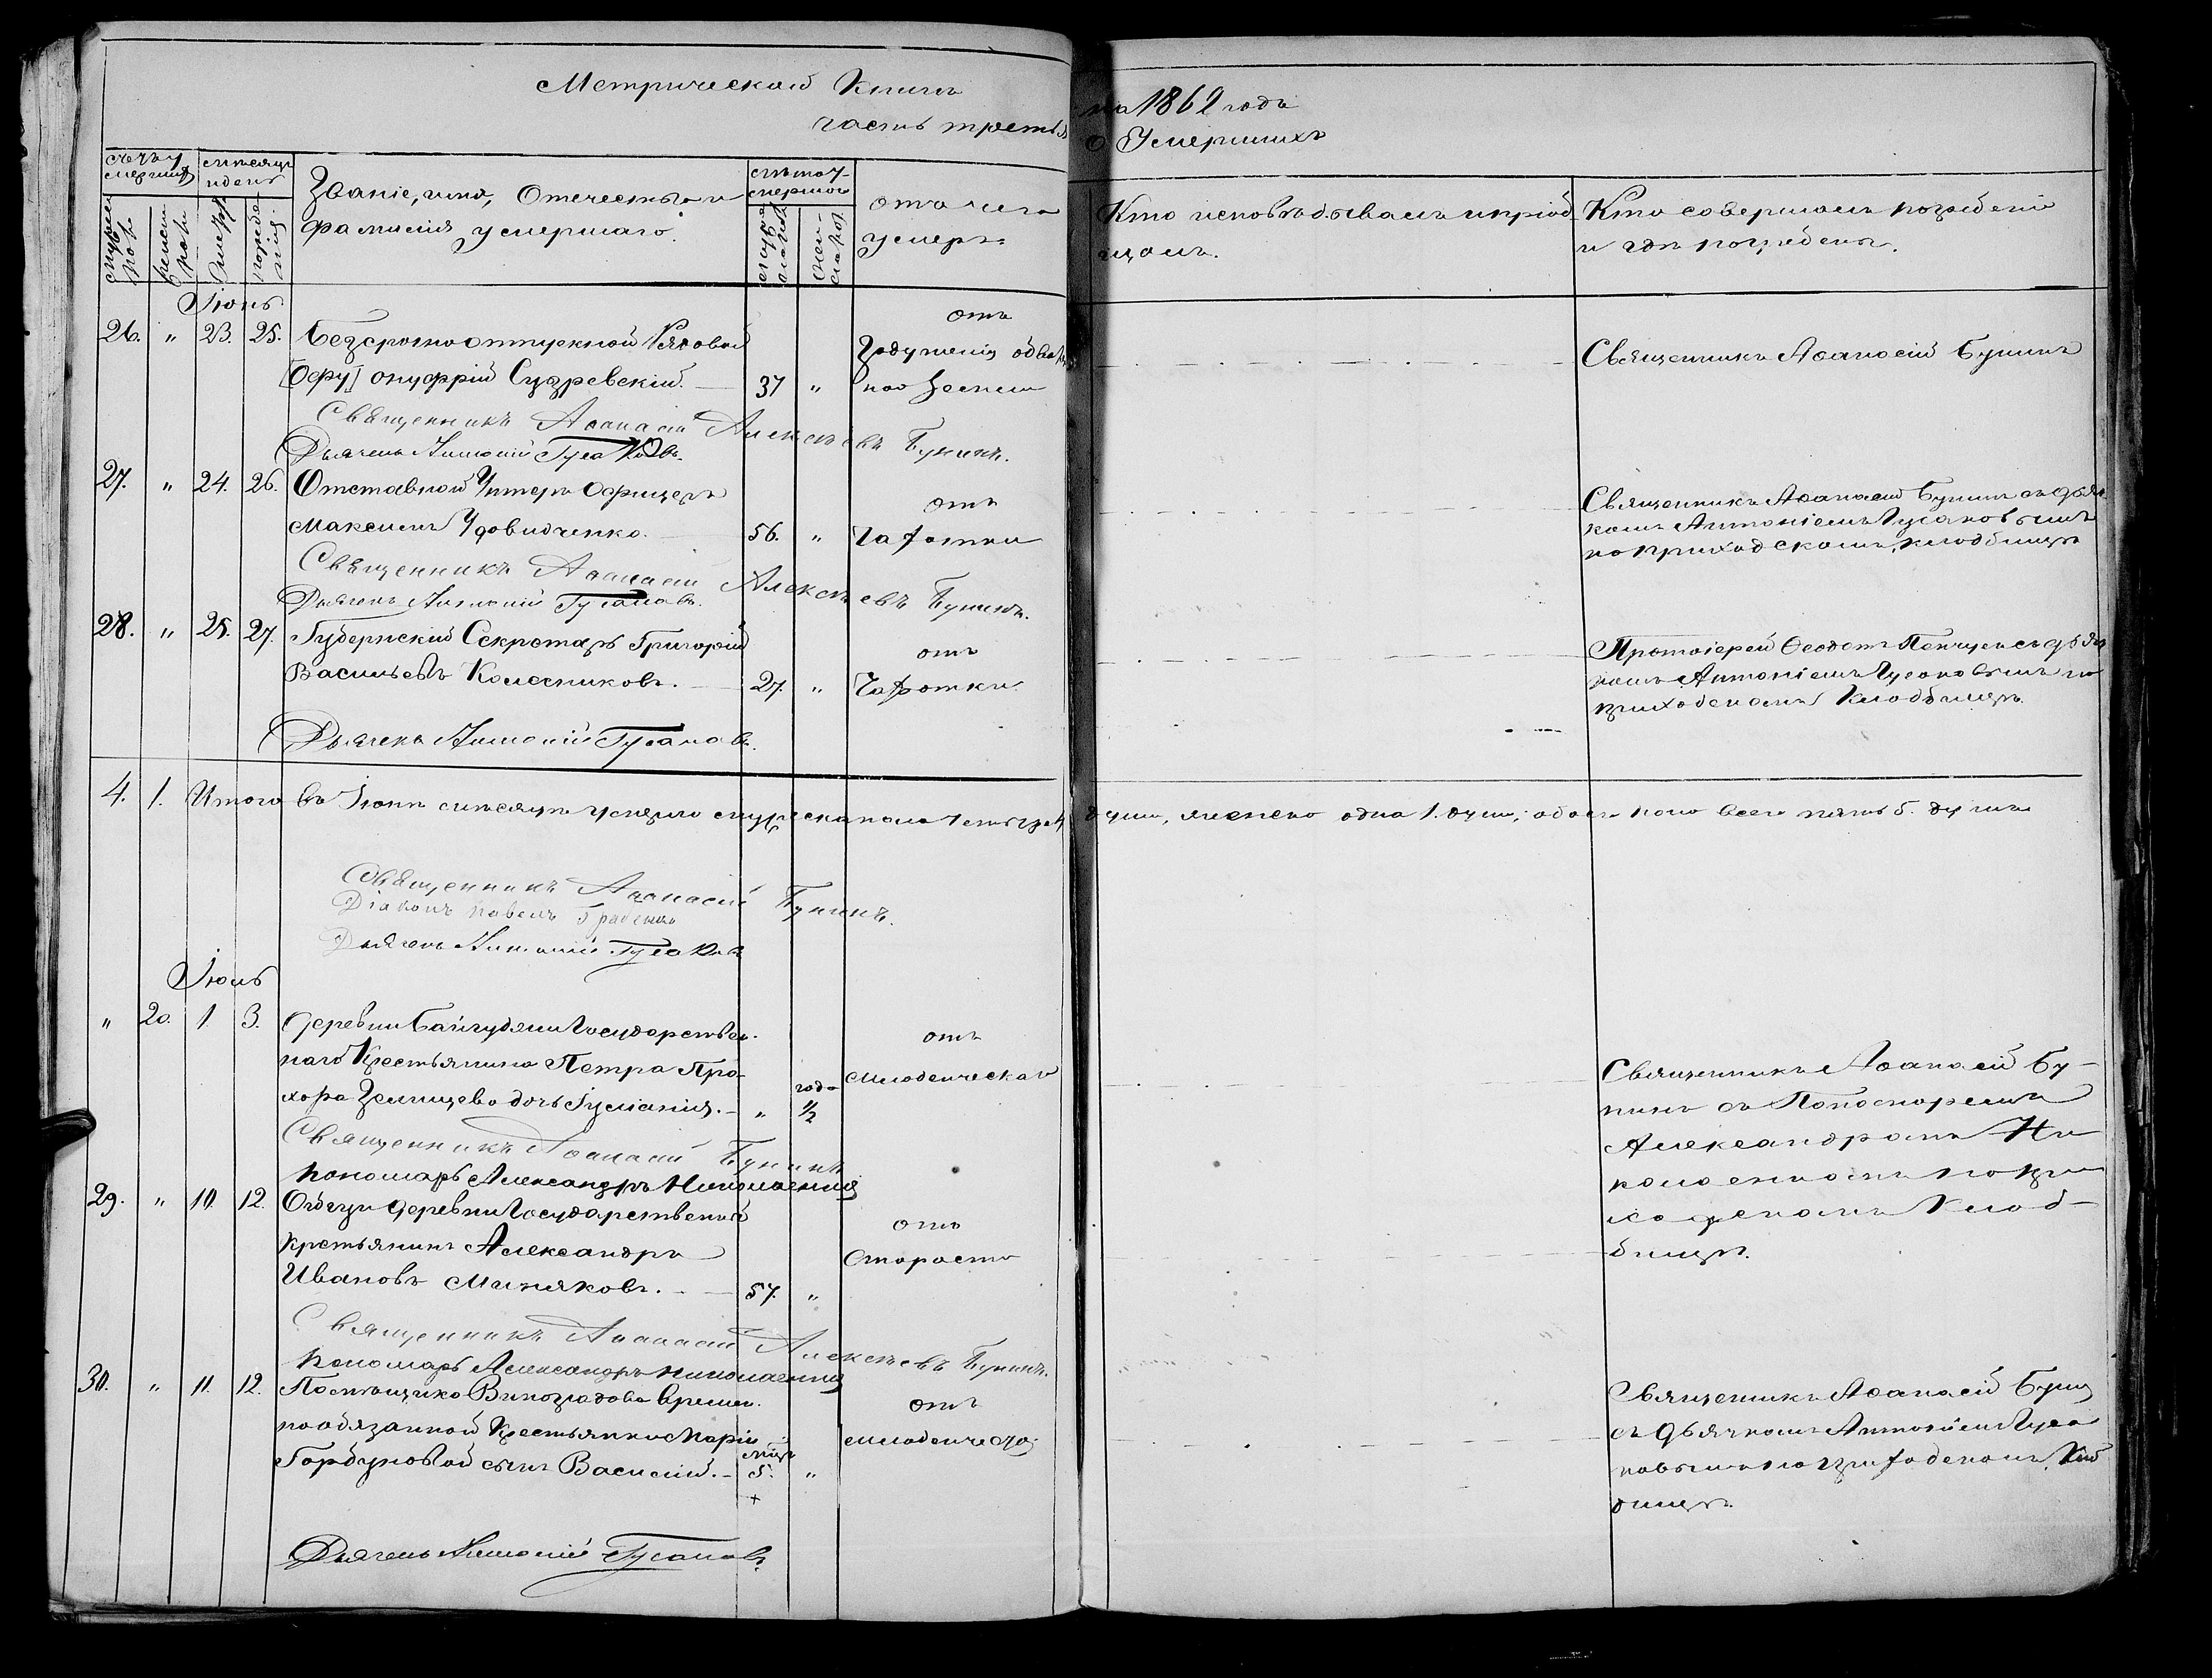 Метрической Книги на 1862 годъ
часть третья о Умершихъ
Счетъ умершихъ
мѣсяцъ и день
Званіе, имя, Отечество и фамилія умершаго.
лѣта умершаго
отъ чего умеръ
Кто исповѣдывалъ и пріобщалъ.
Кто совершалъ погребеніе и гдѣ погребенъ.
мужеска пола
женска пола
смерти
погребенія
мужеска пола
женска пола
Іюнь
26. " 23. 25. Безсрочноотпускной Рядовой
[Офу] онуфрій Судревскій. 37 "
отъ
Священникъ Аѳанасій Бунинъ
Священникъ Аѳанасій Алексѣевъ Бунинъ.
Дьячекъ Антоній Гусаковъ.
27. " 24. 26. Отставной Унтеръ Офицеръ
Максимъ Удовидченко. 56. "
отъ
Чахотки
Священникъ Аѳанасій Бунинъ съ дьяч
комъ Антоніемъ Гусаковымъ
на приходскомъ кладбищѣ
Священникъ Аѳанасій Алексѣевъ Бунинъ.
Дьячекъ Антоній Гусаковъ.
28. " 25. 27. Губернскій Секретарь Григорій
Васильевъ Колесниковъ. 27. "
отъ
Чахотки.
Протоіерей Ѳеодотъ съ дьяч
комъ Антоніемъ Гусаковымъ на
приходскомъ Кладбищѣ.
Дьячекъ Антоній Гусаковъ.
4. 1. Итого въ Іюнѣ мѣсяцѣ умерло мужеска пола четыре 4 души, женско одна 1. душа; обоего поло всего пять 5. душъ
Священникъ Аѳанасій Бунинъ.
Діаконъ Павелъ
Дьячекъ Антоній Гусаковъ
Іюль
" 20. 1. 3. Деревни Государствен-
наго Крестьянина Петра Про-
хора дочь Іуліанія. " года 1/2
отъ
младенческаго
Священникъ Аѳанасій Бу-
нинъ съ Пономаремъ
Александромъ Ни
колаенкомъ на при
ходскомъ Клад-
бищѣ.
Священникъ Аѳанасій Бунинъ
Пономарь Александръ Николаенко
29. " 10. 12. деревни Государственный
Крестьянинъ Александръ
Ивановъ Миняковъ. 57. "
отъ
Старости
Священникъ Аѳанасій Алексѣевъ Бунинъ.
Пономарь Александръ Николаенко
30. " 11. 12. Помѣщика Виноградова времен.
нообязанной Крестьянки Маріи
Горбуновой сынъ Василій. мѣся 5. "
+
отъ
младенческаго
Священникъ Аѳанасій Бунин
съ дьячкомъ Антоніемъ Гуса
ковымъ на приходскомъ Клад
бищѣ.
Дьячекъ Антоній Гусаковъ.